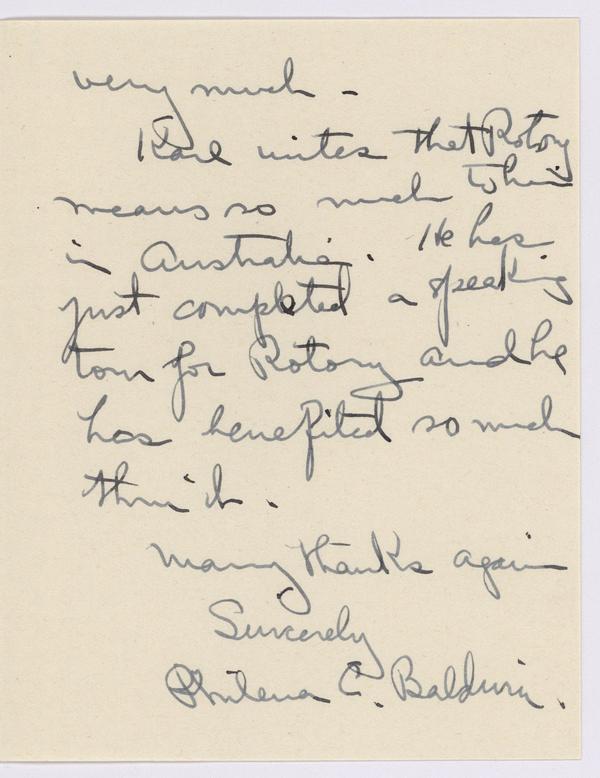 very much -
Karl writes that Rotary
means so much to him
in Australia. He has
just completed a speaking
tour for Rotary and he
has benefited so much
thru it.
Many thanks again
Sincerely
Philena C. Baldwin.